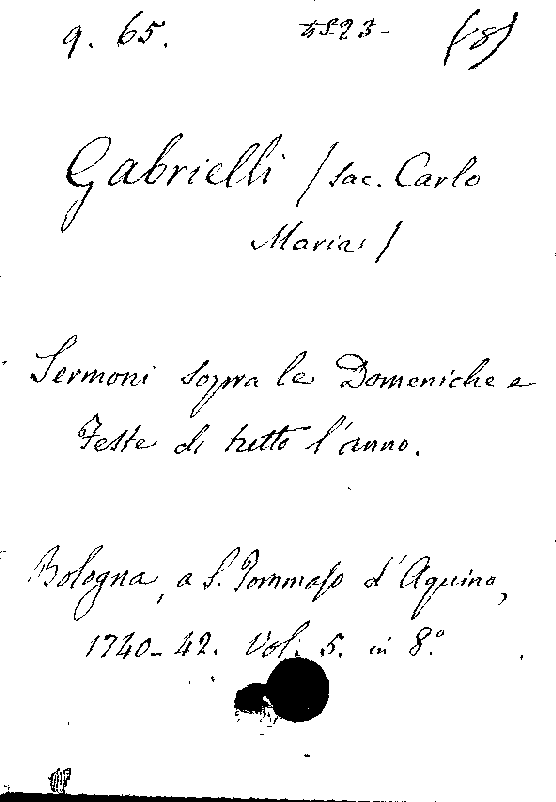 q. 65. 5823- (8)
Gabrielli / sac. Carlo
Maria /
Sermoni sopra le Domeniche e
Feste di tutto l'anno.
Bologna, a S. Tommaso d'Aquino,
1740-42. Vol. 5. in 8.º